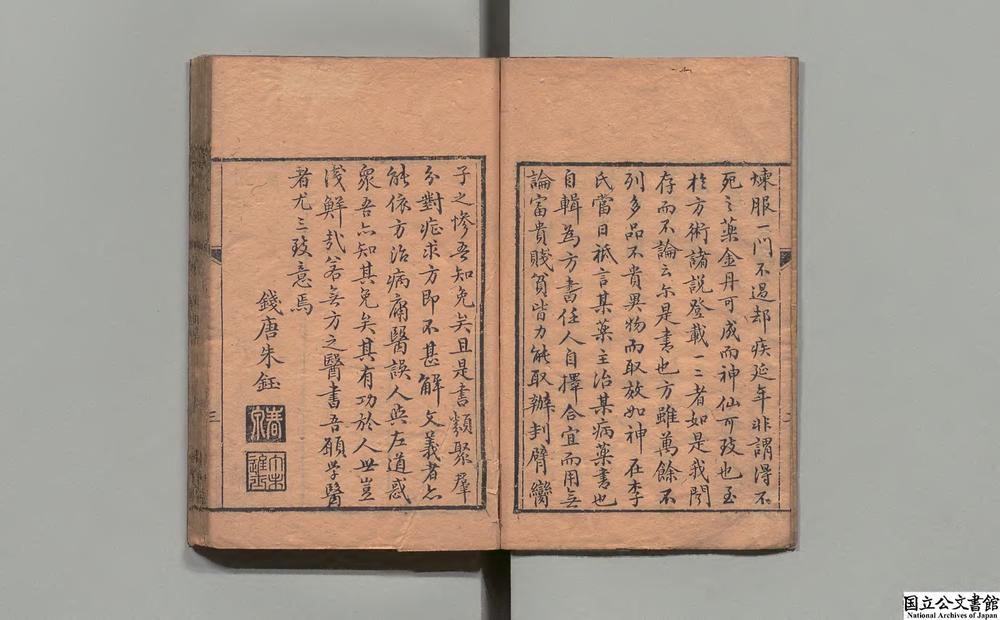 煉服一門不過却疾延年非謂得不
死之藥金丹可成而神仙可致也至
於方術諸説登載一二者如是我聞
存而不論云尔是書也方雖萬餘不
列多品不貴異物而取效如神在李
氏當日祇言某藥主治某病藥書也
自輯為方書任人自擇合宜而用無
論富貴賤貧皆力能取辦刲臂臠
二
子之慘吾知免矣且是書類聚羣
分對症求方即不甚解文義者亦
能依方治病庸醫誤人與左道惑
衆吾亦知其免矣其有功於人世豈
淺鮮哉若無方之醫書吾願學醫
者尤三致意焉
錢唐朱鈺
三
国立公文書館
National Archives of Japan